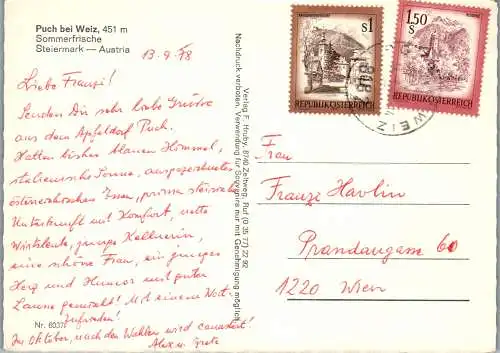 Puch bei Weiz, 451 m
Sommerfrische
Steiermark — Austria
13.9.78
Liebe Franzi!
Senden Dir sehr liebe Grüße
aus dem Apfeldorf Puch.
Hatten bisher blauen Himmel,
italienische Sonne, ausgezeichnetes
österreichisches Essen, prima
Unterkunft mit Komfort, nette
Wirtsleute, junge Kellnerin,
eine schöne Frau, ein junges
Herz und Humor und guten
Laune gewählt! Mit einem Wort
zufrieden!
Im Oktober, nach den Wahlen wird
Alex u. Grete
Nr. 60370
Nachdruck verboten. Verwendung für Souvenirs nur mit Genehmigung möglich
Verlag F. Hruby, 8740 Zeltweg, Ruf (0 35 77) 22 92
S1
REPUBLIK ÖSTERREICH
1.50
S
REPUBLIK ÖSTERREICH
WEIZ
Frau
Franze Havlin
Prandaugasse 60
1220 Wien